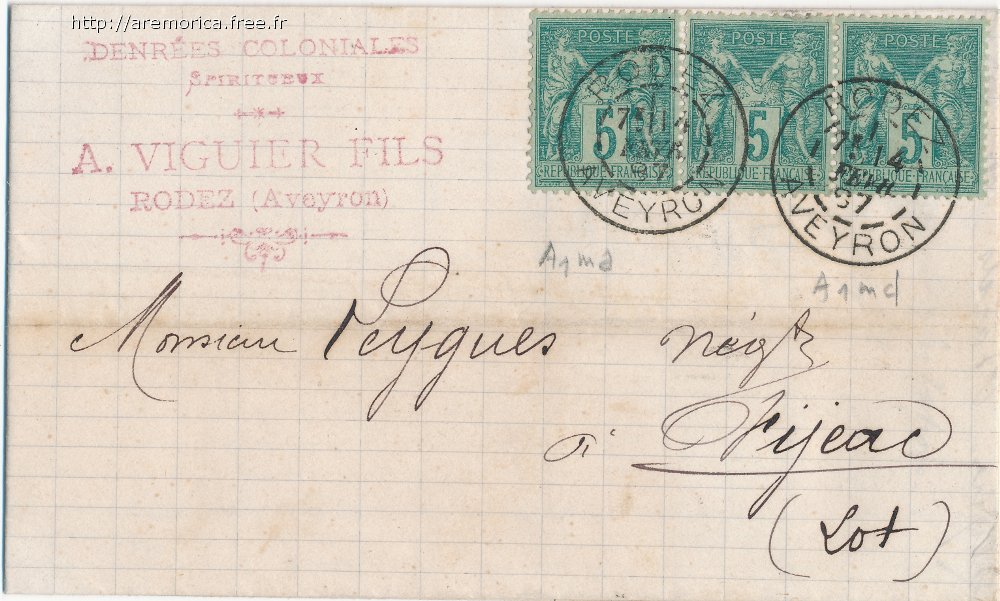 http://aremorica.free.fr
DENRÉES COLONIALES
SPIRITUEUX
A. VIGUIER FILS
RODEZ (Aveyron)
POSTE POSTE POSTE
5 5 5
REPUBLIQUE FRANÇAISE REPUBLIQUE FRANÇAISE REPUBLIQUE FRANÇAISE
RODEZ
AVEYRON
RODEZ
14
87
AVEYRON
A1md
A1md
Monsieur Peyques négt
à Fijeac
(Lot)